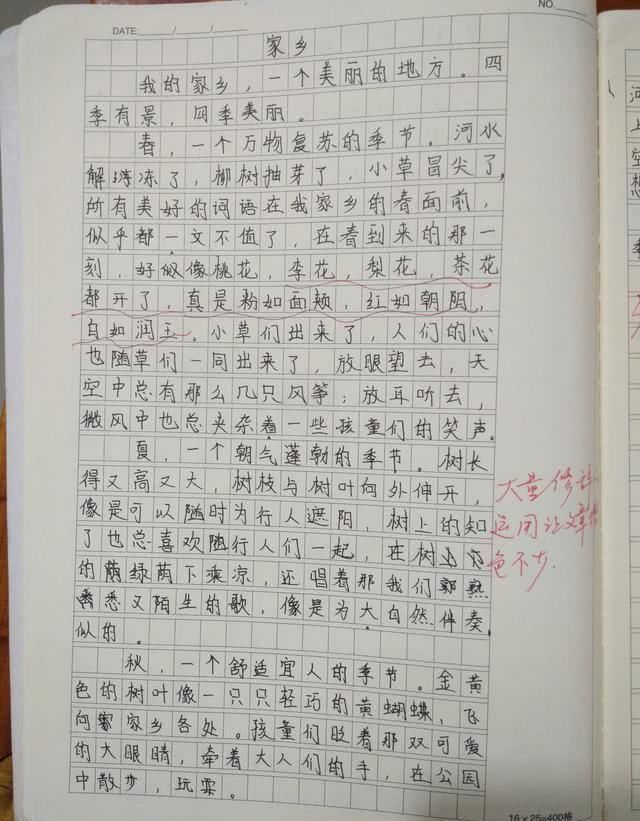 DATE ___/___/___
NO.
家乡
我的家乡，一个美丽的地方。四
季有景，四季美丽。
春，一个万物复苏的季节。河水
解冻了，柳树抽芽了，小草冒尖了，
所有美好的词语在我家乡的春面前，
似乎都一文不值了，在春到来的那一
刻，好似像桃花，李花，梨花，茶花
都开了，真是粉如面颊，红如朝阳，
白如润玉。小草们出来了，人们的心
也随草们一同出来了，放眼望去，天
空中总有那么几只风筝；放耳听去，
微风中也总夹杂着一些孩童们的笑声。
夏，一个朝气蓬勃的季节。树长
得又高又大，树枝与树叶向外伸开，
像是可以随时为行人遮阳，树上的知
了也总喜欢随行人们一起，在树
的绿荫下乘凉，还唱着那我们熟
悉又陌生的歌，像是为大自然伴奏
似的。
秋，一个舒适宜人的季节。金黄
色的树叶像一只只轻巧的黄蝴蝶，飞
向家乡各处。孩童们眨着那双可爱
的大眼睛，牵着大人们的手，在公园
中散步，玩耍。
大量修辞
运用让文章
色不少.
16×25=400格
河
上
空
想